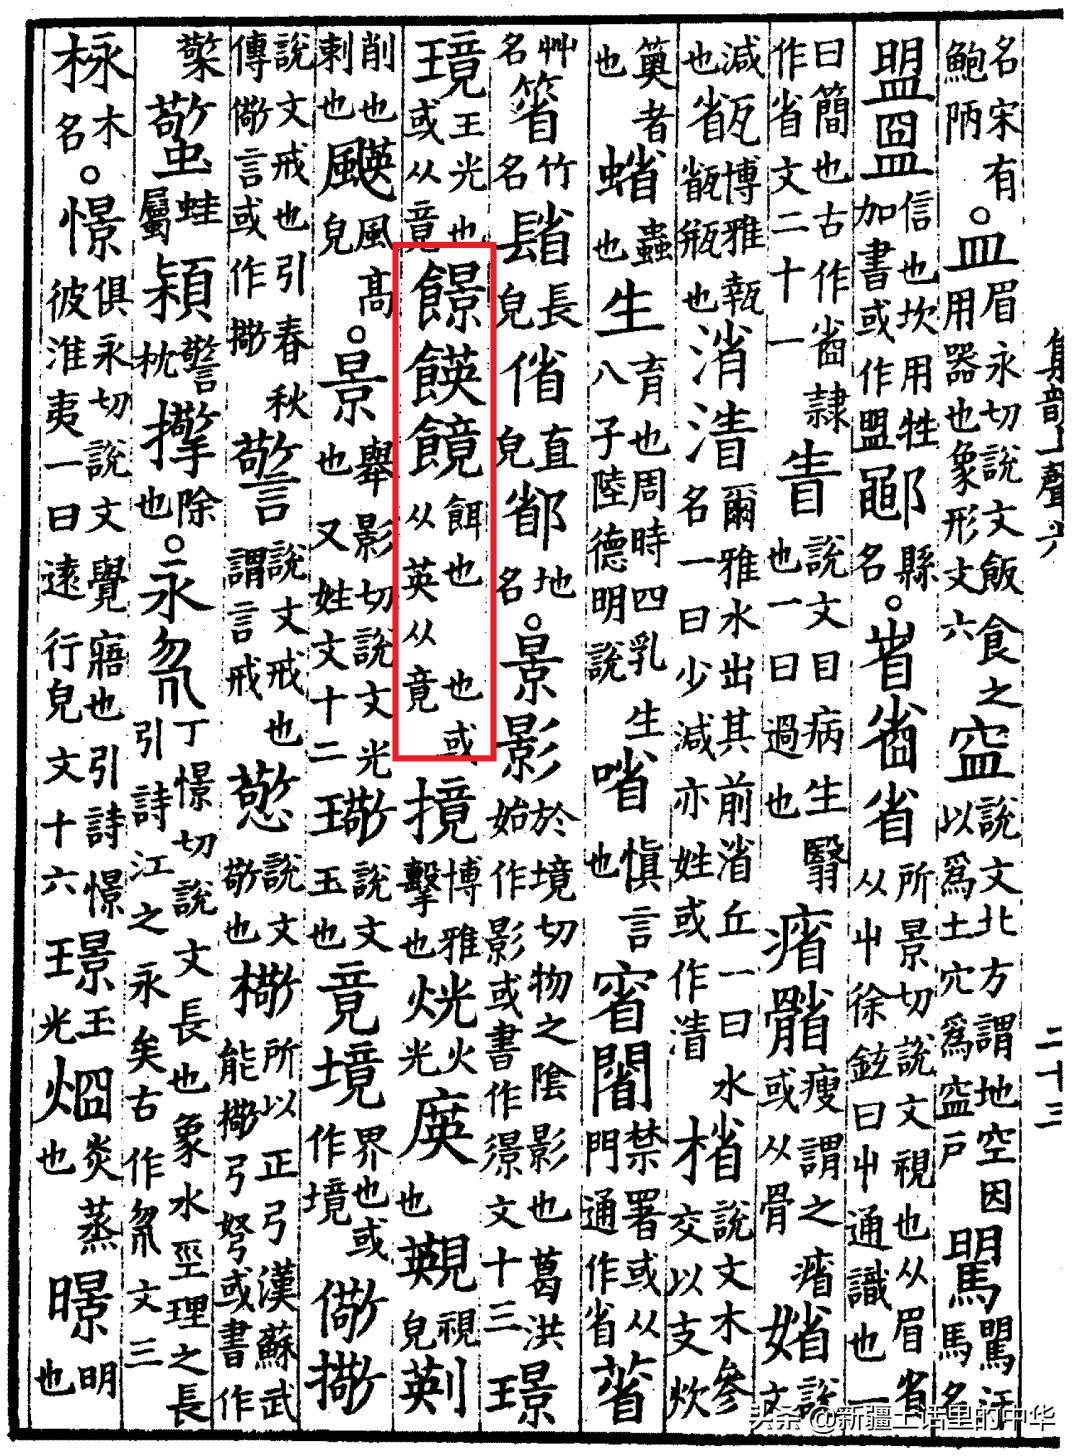 集韻上聲六 二十三
名宋有鮑陃。皿眉永切說文飯食之用器也象形文六 說文北方謂地空因以爲土穴爲戶 馬名
盟信也坎用牲加書或作盟鄳縣名。省省所景切說文視也从眉省从屮徐鉉曰屮通識也一
曰簡也古作隸作省文二十一眚說文目病生翳也一曰過也瘦謂之或从骨媘說文
減也博雅瓶也渻爾雅水出其前渻丘一曰水名一曰少減亦姓或作說文木參交以支炊
者也蛸蟲也生育也周時四乳生八子陸德明說愼言也禁署或从門通作省
艸名箵竹名長皃偗直皃地名。景影於境切物之陰影也葛洪始作影或書作文十三璟
璄玉光也或从竟餌也 也或从英从竟摬博雅擊也火光也視皃
削也剌也風高皃。景舉影切說文光也又姓文十二璥說文玉也竟境界也或作境儆
說文戒也引春秋傳儆言或作警說文戒也謂言戒憼說文敬也所以正弓漢蘇武能弓弩或書作
檠蟼蛙屬熲警枕除也。永丁憬切說文長也象水巠理之長引詩江之永矣古作文三
栐木名。憬俱永切說文覺寤也引詩憬彼淮夷一曰遠行皃文十六璟玉光炎蒸也暻明也
头条 @新疆土话里的中华